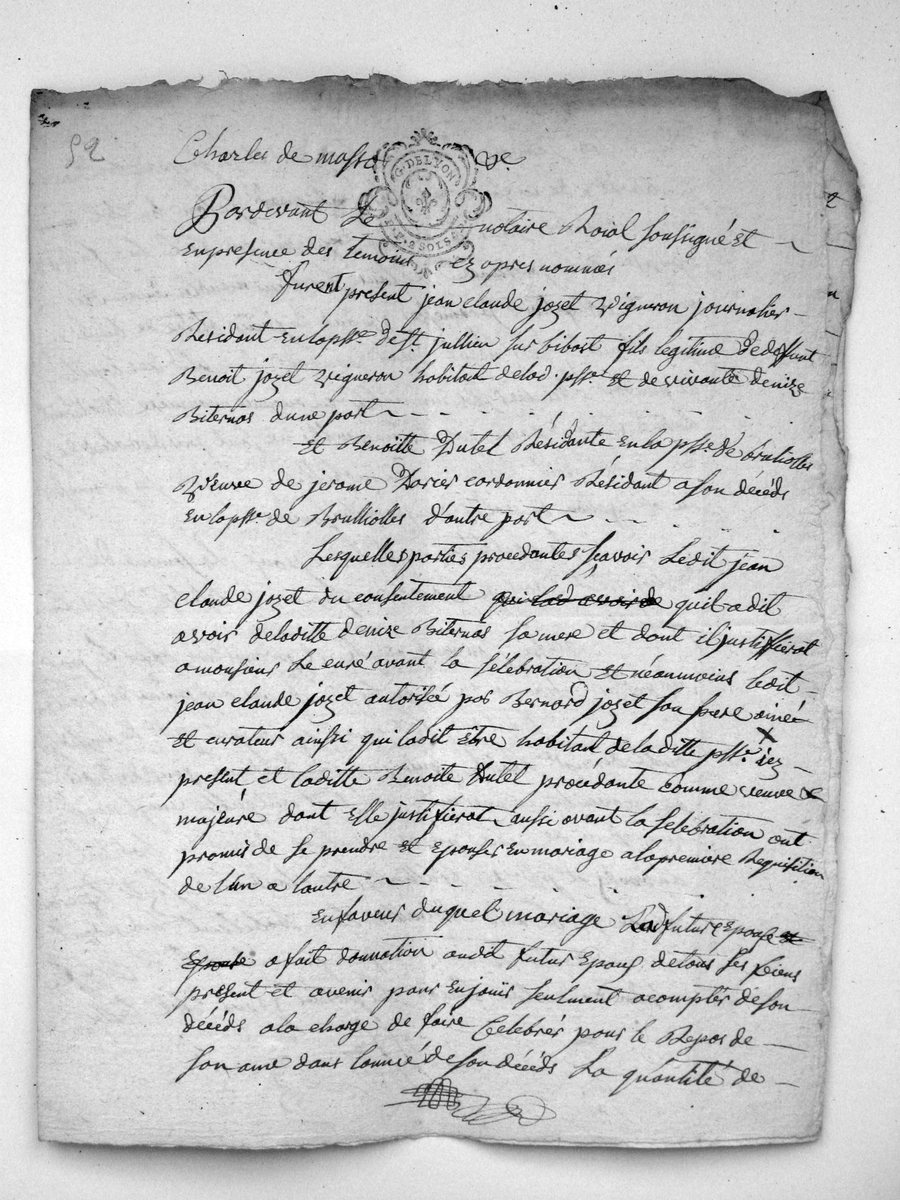 52
Charles de masso
G. DE LYON
2 SOLS
Pardevant Le notaire Roial soussigné et
En presence des temoins cy apres nommés
furent present jean claude jozet vigneron journalier
Residant en la psse. de st. jullien sur bibost fils legitime de deffunt
Benoit jozet vigneron habitant de lad. psse. et de vivante denize
Biternas dune part
Et Benoitte Dutel Résidante en la psse. de bruliolles
Veuve de jerome Darier cordonnier Résidant a son décéds
En la psse. de Brulliolles d'autre part
Lesquelles parties procedantes sçavoir Ledit jean
claude jozet du consentement quil a dit
avoir de laditte denize Biternas sa mere et dont il justiffierat
a monsieur Le curé avant la sélébration et néanmoins ledit
jean claude jozet autorisée par Bernard jozet son frere ainée
Et curateur ainssi qui ladit être habitant de laditte psse. icy
present, et laditte Benoite dutel procédante comme veuve
majeure dont Elle justifierat aussi avant la selebration ont
promis de se prendre et Epouser en mariage a la premiere Requisition
de lun a lautre
En faveur duquel mariage Lad future Epouse et
Epouse a fait donnation audit futur Epoux de tous ses biens
present et avenir pour En jouir seulment a compter de son
décéds a la charge de faire Celebrer pour le Repos de
son ame dans lannée de son décéds La quantité de